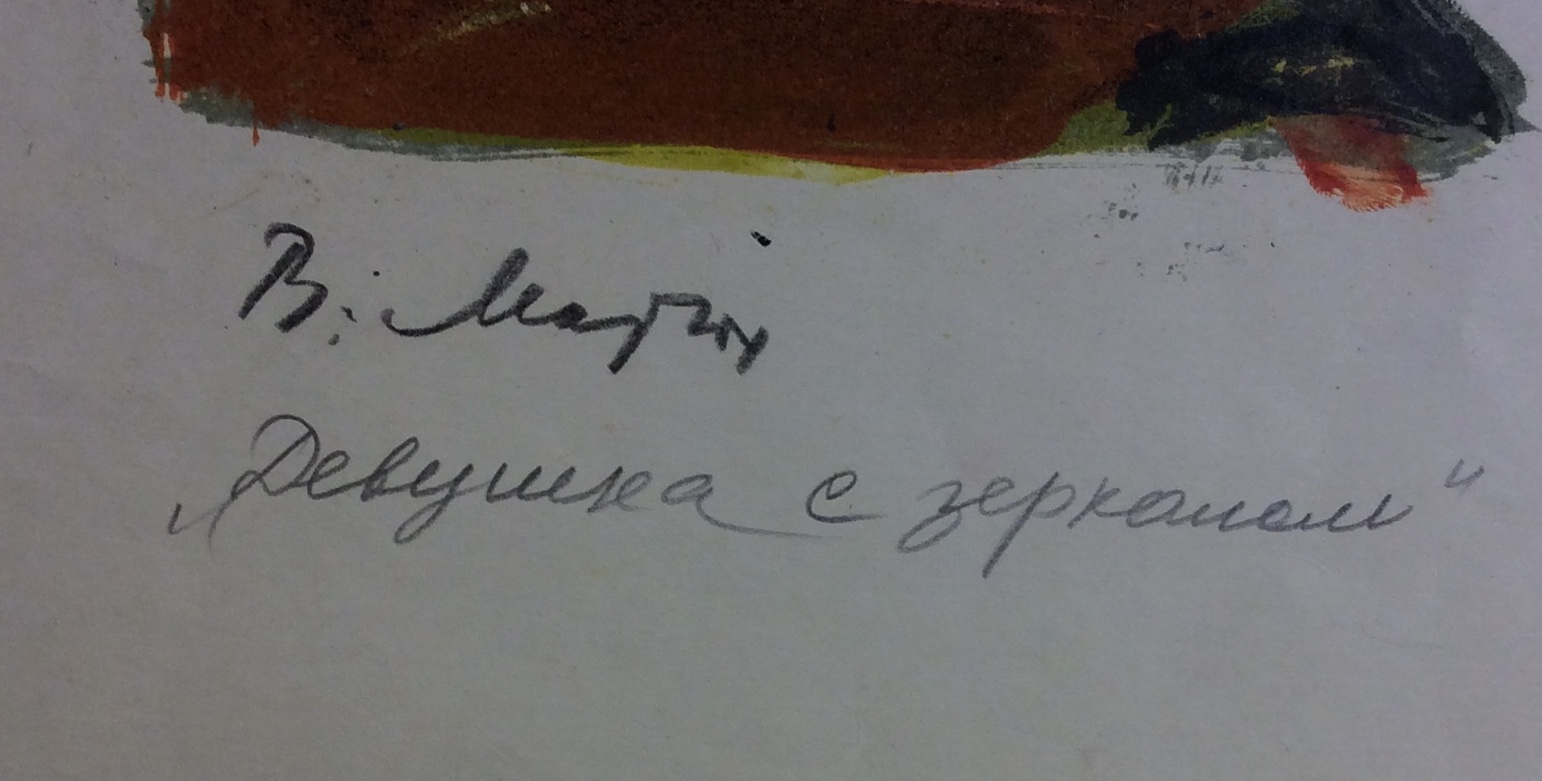 В. Мартін
„Девушка с зеркалом“